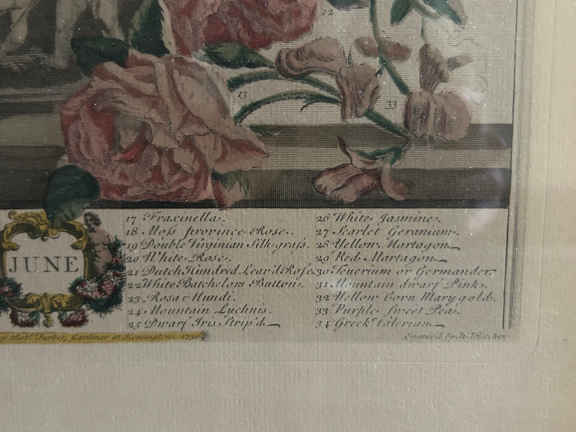 22
13
33
JUNE
17 Fraxinella.
18 Moss province Rose.
19 Double Virginian Silk-grass.
20 White Rose.
21 Dutch Hundred Leav'd Rose
22 White Batchelors Buttons.
23 Rosa Mundi.
24 Mountain Lychnis.
25 Dwarf Iris Strip'd
26 White Jasmine.
27 Scarlet Geranium.
28 Yellow Martagon
29 Red Martagon
30 Teucrium or Germander.
31 Mountain dwarf Pink.
32 Yellow Corn Marygold.
33 Purple Sweet Pea.
34 Greek Valerian
Furber, Gardiner at Kensington